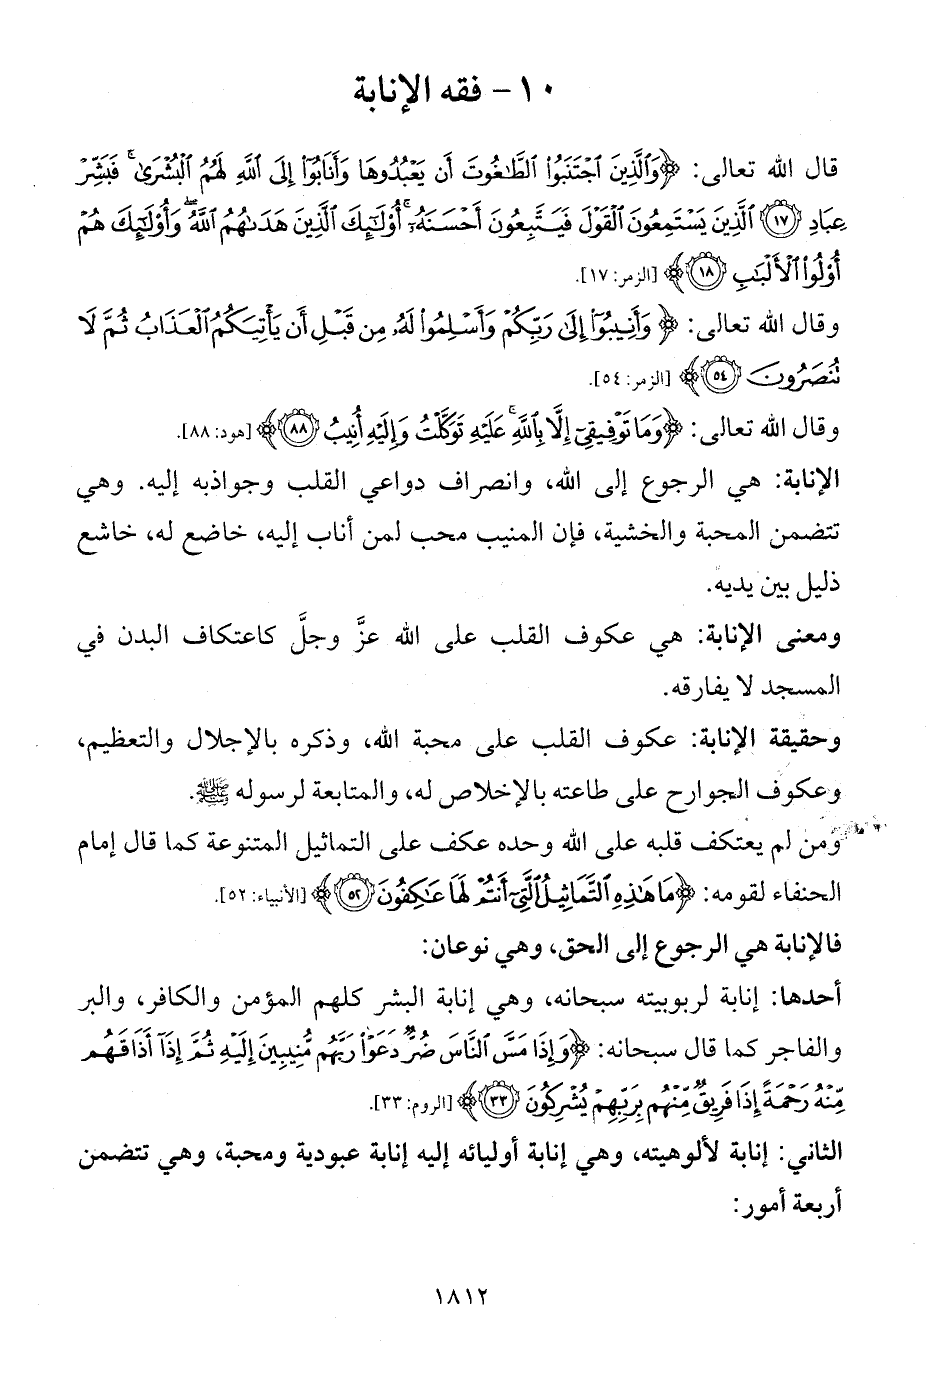 ١٠ - فقه الإنابة
قال الله تعالى: ﴿وَٱلَّذِينَ ٱجْتَنَبُوا۟ ٱلطَّٰغُوتَ أَن يَعْبُدُوهَا وَأَنَابُوٓا۟ إِلَى ٱللَّهِ لَهُمُ ٱلْبُشْرَىٰ ۚ فَبَشِّرْ
عِبَادِ ﴿١٧﴾ ٱلَّذِينَ يَسْتَمِعُونَ ٱلْقَوْلَ فَيَتَّبِعُونَ أَحْسَنَهُۥٓ ۚ أُو۟لَٰٓئِكَ ٱلَّذِينَ هَدَىٰهُمُ ٱللَّهُ ۖ وَأُو۟لَٰٓئِكَ هُمْ
أُو۟لُوا۟ ٱلْأَلْبَٰبِ ﴿١٨﴾﴾ [الزمر: ١٧].
وقال الله تعالى: ﴿وَأَنِيبُوٓا۟ إِلَىٰ رَبِّكُمْ وَأَسْلِمُوا۟ لَهُۥ مِن قَبْلِ أَن يَأْتِيَكُمُ ٱلْعَذَابُ ثُمَّ لَا
تُنصَرُونَ ﴿٥٤﴾﴾ [الزمر: ٥٤].
وقال الله تعالى: ﴿وَمَا تَوْفِيقِىٓ إِلَّا بِٱللَّهِ ۚ عَلَيْهِ تَوَكَّلْتُ وَإِلَيْهِ أُنِيبُ ﴿٨٨﴾﴾ [هود: ٨٨].
الإنابة: هي الرجوع إلى الله، وانصراف دواعي القلب وجواذبه إليه. وهي
تتضمن المحبة والخشية، فإن المنيب محب لمن أناب إليه، خاضع له، خاشع
ذليل بين يديه.
ومعنى الإنابة: هي عكوف القلب على الله عزَّ وجلَّ كاعتكاف البدن في
المسجد لا يفارقه.
وحقيقة الإنابة: عكوف القلب على محبة الله، وذكره بالإجلال والتعظيم،
وعكوف الجوارح على طاعته بالإخلاص له، والمتابعة لرسوله ﷺ.
ومن لم يعتكف قلبه على الله وحده عكف على التماثيل المتنوعة كما قال إمام
الحنفاء لقومه: ﴿مَا هَٰذِهِ ٱلتَّمَاثِيلُ ٱلَّتِىٓ أَنتُمْ لَهَا عَٰكِفُونَ ﴿٥٢﴾﴾ [الأنبياء: ٥٢].
فالإنابة هي الرجوع إلى الحق، وهي نوعان:
أحدها: إنابة لربوبيته سبحانه، وهي إنابة البشر كلهم المؤمن والكافر، والبر
والفاجر كما قال سبحانه: ﴿وَإِذَا مَسَّ ٱلنَّاسَ ضُرٌّ دَعَوْا۟ رَبَّهُم مُّنِيبِينَ إِلَيْهِ ثُمَّ إِذَآ أَذَاقَهُم
مِّنْهُ رَحْمَةً إِذَا فَرِيقٌ مِّنْهُم بِرَبِّهِمْ يُشْرِكُونَ ﴿٣٣﴾﴾ [الروم: ٣٣].
الثاني: إنابة لألوهيته، وهي إنابة أوليائه إليه إنابة عبودية ومحبة، وهي تتضمن
أربعة أمور:
١٨١٢